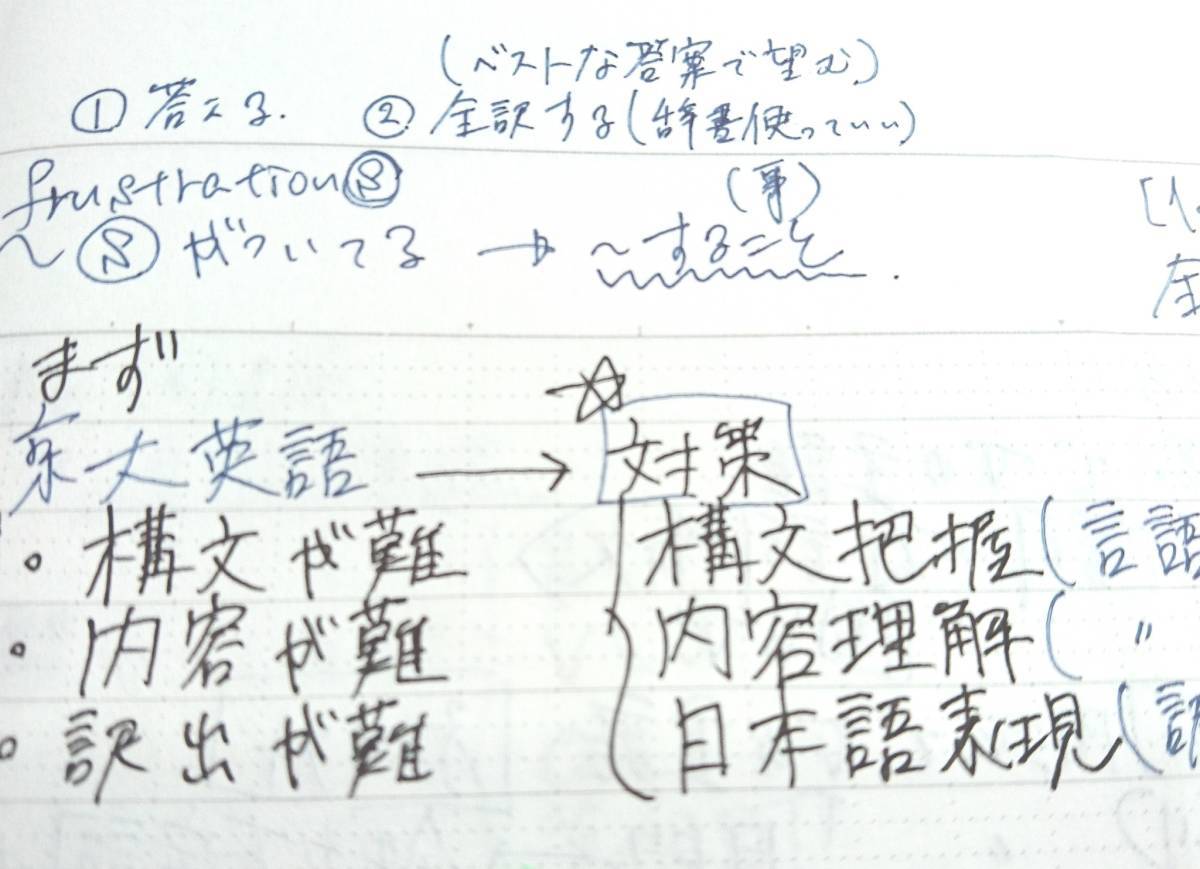 (ベストな答案で望む)
① 答える. ② 全訳する(辞書使っていい)
frustrationⓢ (事)
～ⓢがついてる → ～すること.
まず
京大英語 → ☆対策
・構文が難 構文把握(言語
・内容が難 内容理解( 〃
・訳出が難 日本語表現(訳